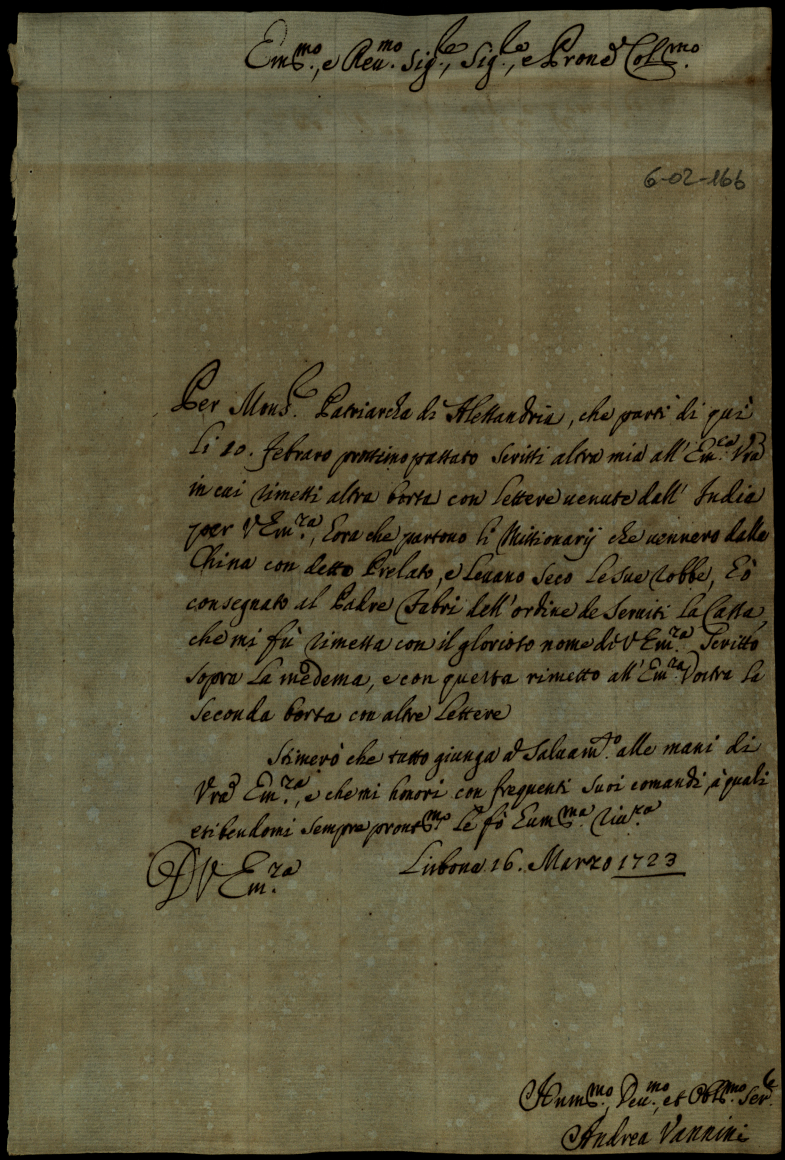 Em.mo, e Reu.mo Sig.re, Sig.re, e Prone Col.mo
6-02-166
Per Mons.r Patriarcha di Alessandria, che partì di quì
li 20. febraro prossimo passato scrissi altra mia all' Em.za Vra
in cui rimessi altra borsa con lettere uenute dall' India
per V Em.za, hora che partono li Missionarij che uennero dalla
China con detto Prelato, e leuano seco le sue robbe, hò
consegnato al Padre Fabri dell' ordine de Seruiti la Cassa,
che mi fù rimessa con il glorioso nome di V Em.za scritto
sopra la medema, e con questa rimetto all' Em.za Vostra la
seconda borsa con altre lettere
Stimerò che tutto giunga à Saluam.to alle mani di
Vra Em.za, e che mi honori con frequenti suoi comandi, à quali
esibendomi sempre pront.mo le fò hum.ma riu.za
D V Em.za
Lisbona 16. Marzo 1723
Hum.mo, Deu.mo, et Obl.mo Ser.e
Andrea Vannini